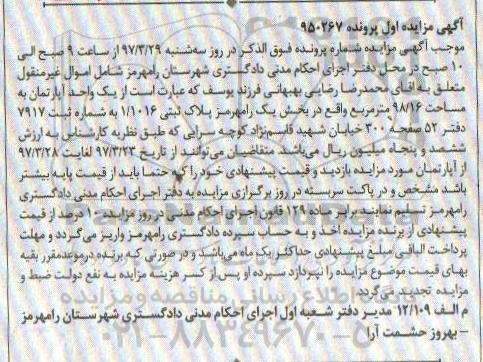 آگهی مزایده اول پرونده ۹۵۰۲۶۷
موجب آگهی مزایده شماره پرونده فوق الذکر در روز سه‌شنبه ۹۷/۳/۲۹ از ساعت ۹ صبح الی
۱۰ صبح در محل دفتر اجرای احکام مدنی دادگستری شهرستان رامهرمز شامل اموال غیرمنقول
متعلق به اقای محمدرضا رضایی بهبهانی فرزند یوسف که عبارت است از یک واحد آپارتمان به
مساحت ۹۸/۱۶ مترمربع واقع در بخش یک رامهرمز پلاک ثبتی ۱/۱۰۱۶ به شماره ثبت ۷۹۱۷
دفتر ۵۲ صفحه ۳۰۰ خیابان شهید قاسم‌نژاد کوچه سرایی که طبق نظریه کارشناس به ارزش
ششصد و پنجاه میلیون ریال می‌باشد. متقاضیان می‌توانند از تاریخ ۹۷/۳/۲۳ لغایت ۹۷/۳/۲۸
از آپارتمان مورد مزایده بازدید و قیمت پیشنهادی خود را که حتما باید از قیمت پایه بیشتر
باشد مشخص و در پاکت سربسته در روز برگزاری مزایده به دفتر اجرای احکام مدنی دادگستری
رامهرمز تسلیم نمایند برابر ماده ۱۲۹ قانون اجرای احکام مدنی در روز مزایده ۱۰ درصد از قیمت
پیشنهادی از برنده مزایده اخذ و به حساب سپرده دادگستری رامهرمز واریز می‌گردد و مهلت
پرداخت الباقی مبلغ پیشنهادی حداکثر یک ماه می‌باشد و در صورتی که برنده در موعد مقرر بقیه
بهای قیمت موضوع مزایده را نپردازد سپرده او پس از کسر هزینه مزایده به نفع دولت ضبط و
مزایده تجدید می‌گردد.
م الف ۱۲/۱۰۹ مدیر دفتر شعبه اول اجرای احکام مدنی دادگستری شهرستان رامهرمز
– بهروز حشمت آرا
پایگاه اطلاع رسانی مناقصه و مزایده
۰۲۱-۸۸۳۴۹۶۷۰-۵